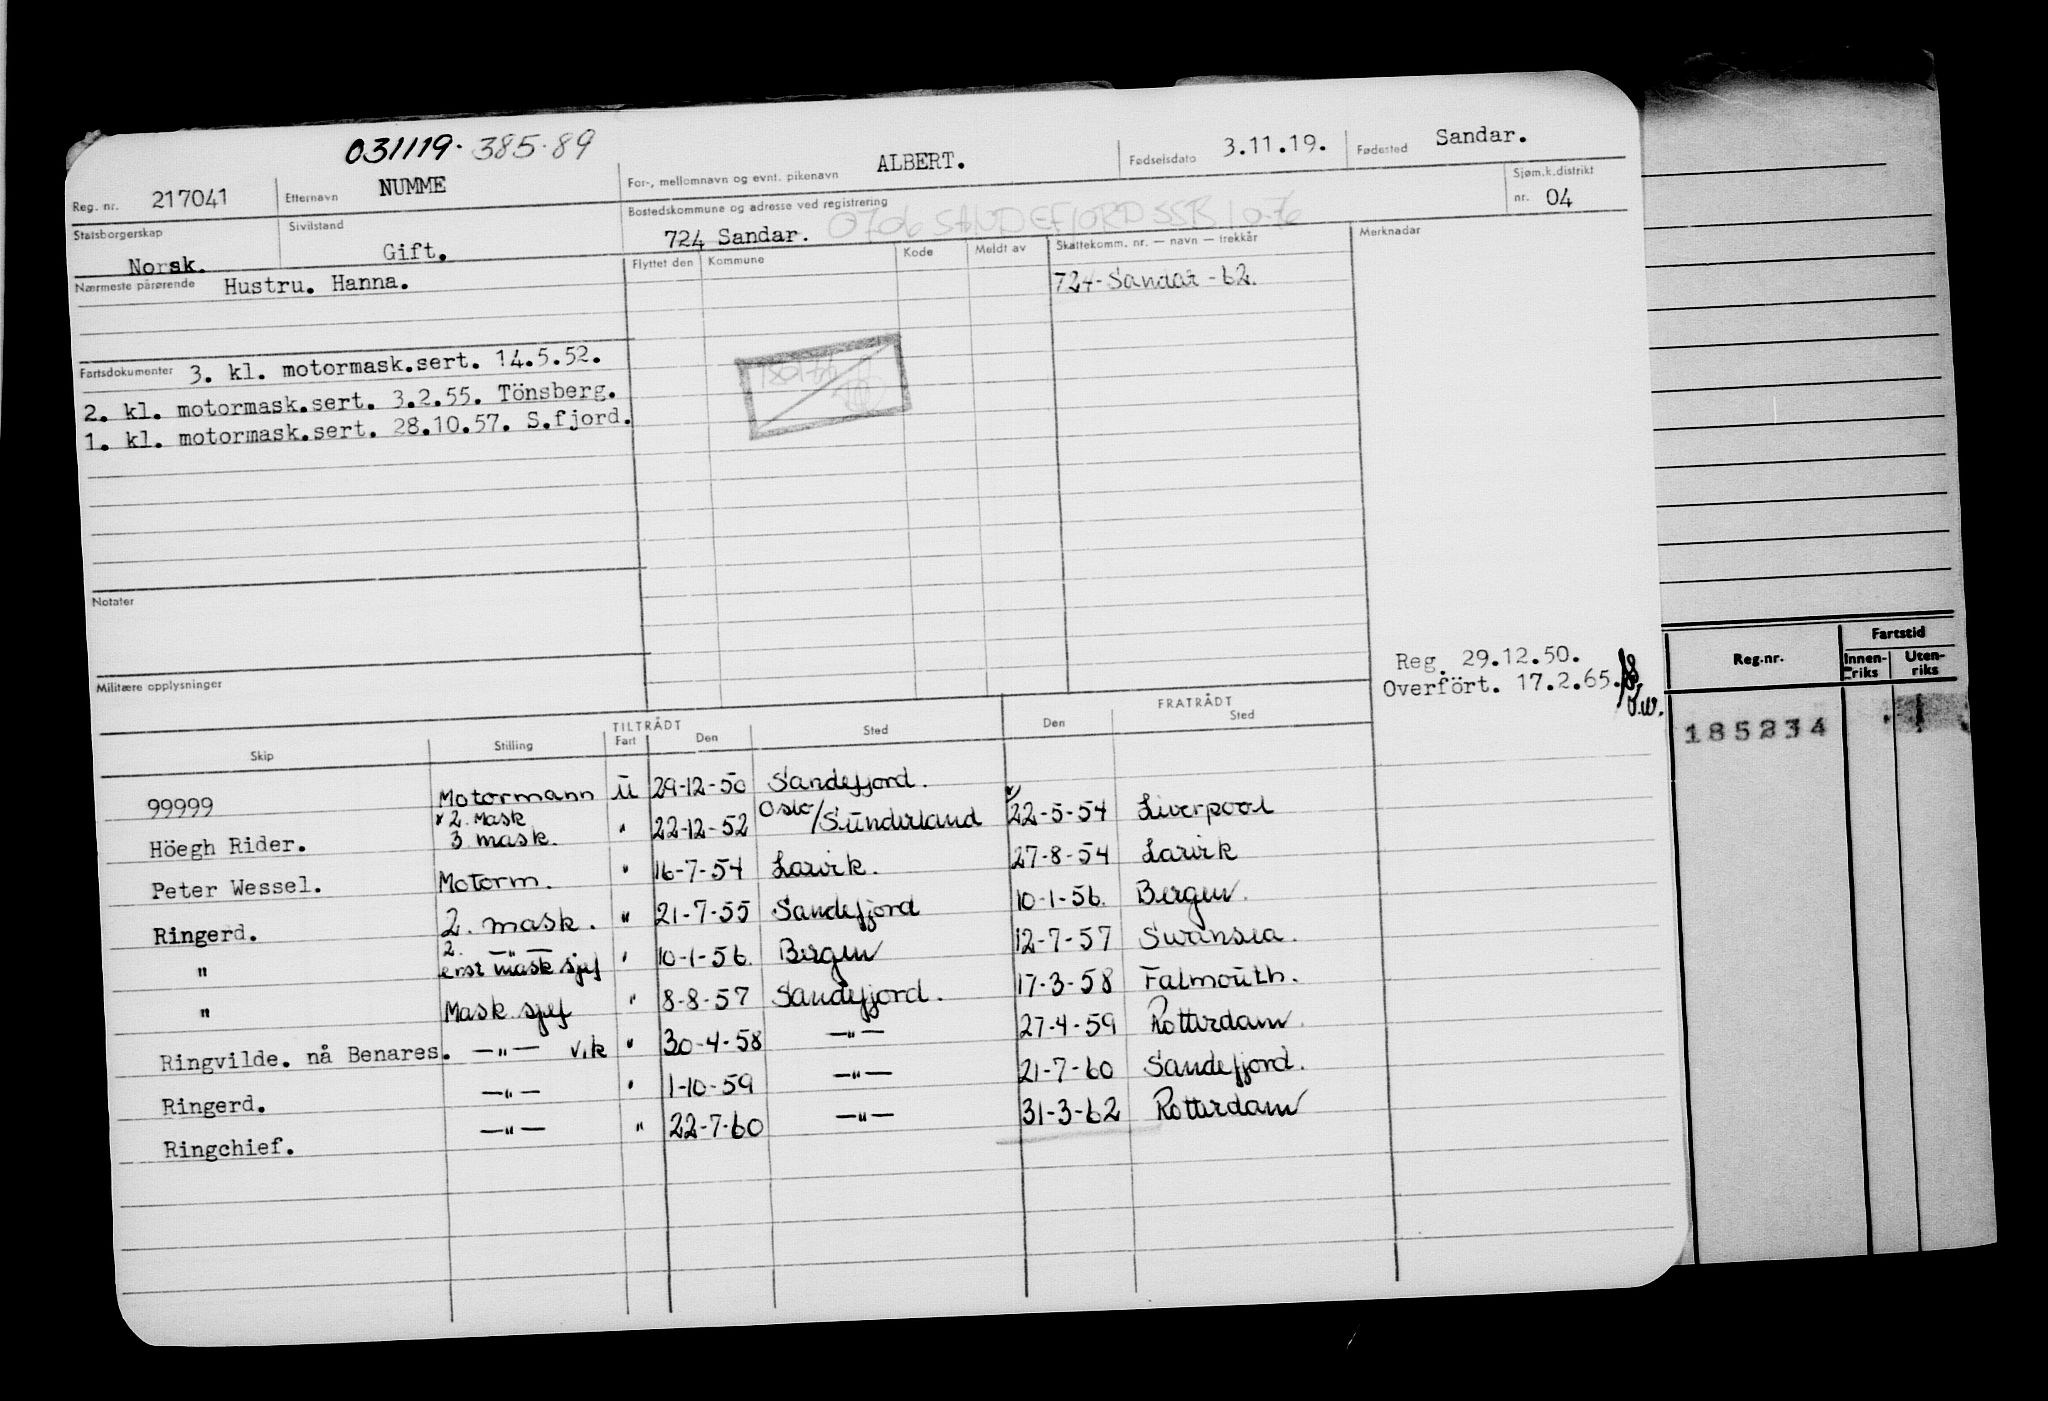 031119. 385.89
Reg. nr. 217041 Etternavn NUMME For-, mellomnavn og evnt. pikenavn ALBERT. Fødselsdato 3.11.19. Fødested Sandar.
Statsborgerskap Norsk. Sivilstand Gift. Bostedskommune og adresse ved registrering 724 Sandar. 0706 SANDEFJORD SSB 10-76 Sjøm.k.distrikt nr. 04
Nærmeste pårørende Hustru. Hanna. Flyttet den Kommune Kode Meldt av Skattekomm. nr. — navn — trekkår Merknader
724- Sandar - 62.
Fartsdokumenter 3. kl. motormask.sert. 14.5.52.
2. kl. motormask.sert. 3.2.55. Tönsberg.
1. kl. motormask.sert. 28.10.57. S.fjord.
Notater
Militære opplysninger
Reg. 29.12.50.
Overfört. 17.2.65.
TILTRÅDT FRATRÅDT
Skip Stilling Fart Den Sted Den Sted
99999 Motormann U 29-12-50 Sandefjord.
2. Mask
Höegh Rider. 3 mask. " 22-12-52 Oslo/Sunderland 22-5-54 Liverpool
Peter Wessel. Motorm. " 16-7-54 Larvik. 27-8-54 Larvik
Ringerd. 2. mask. " 21-7-55 Sandefjord 10-1-56. Bergen.
2. —"—
" erst mask sjef " 10-1-56. Bergen 12-7-57 Swansea.
" Mask sjef " 8-8-57 Sandefjord. 17-3-58 Falmouth.
Ringvilde. nå Benares. —"— vik " 30-4-58 —"— 27-4-59 Rotterdam.
Ringerd. —"— " 1-10-59 —"— 21-7-60 Sandefjord.
Ringchief. —"— " 22-7-60 —"— 31-3-62 Rotterdam
Reg.nr. Fartstid
Innen-riks Uten-riks
185234